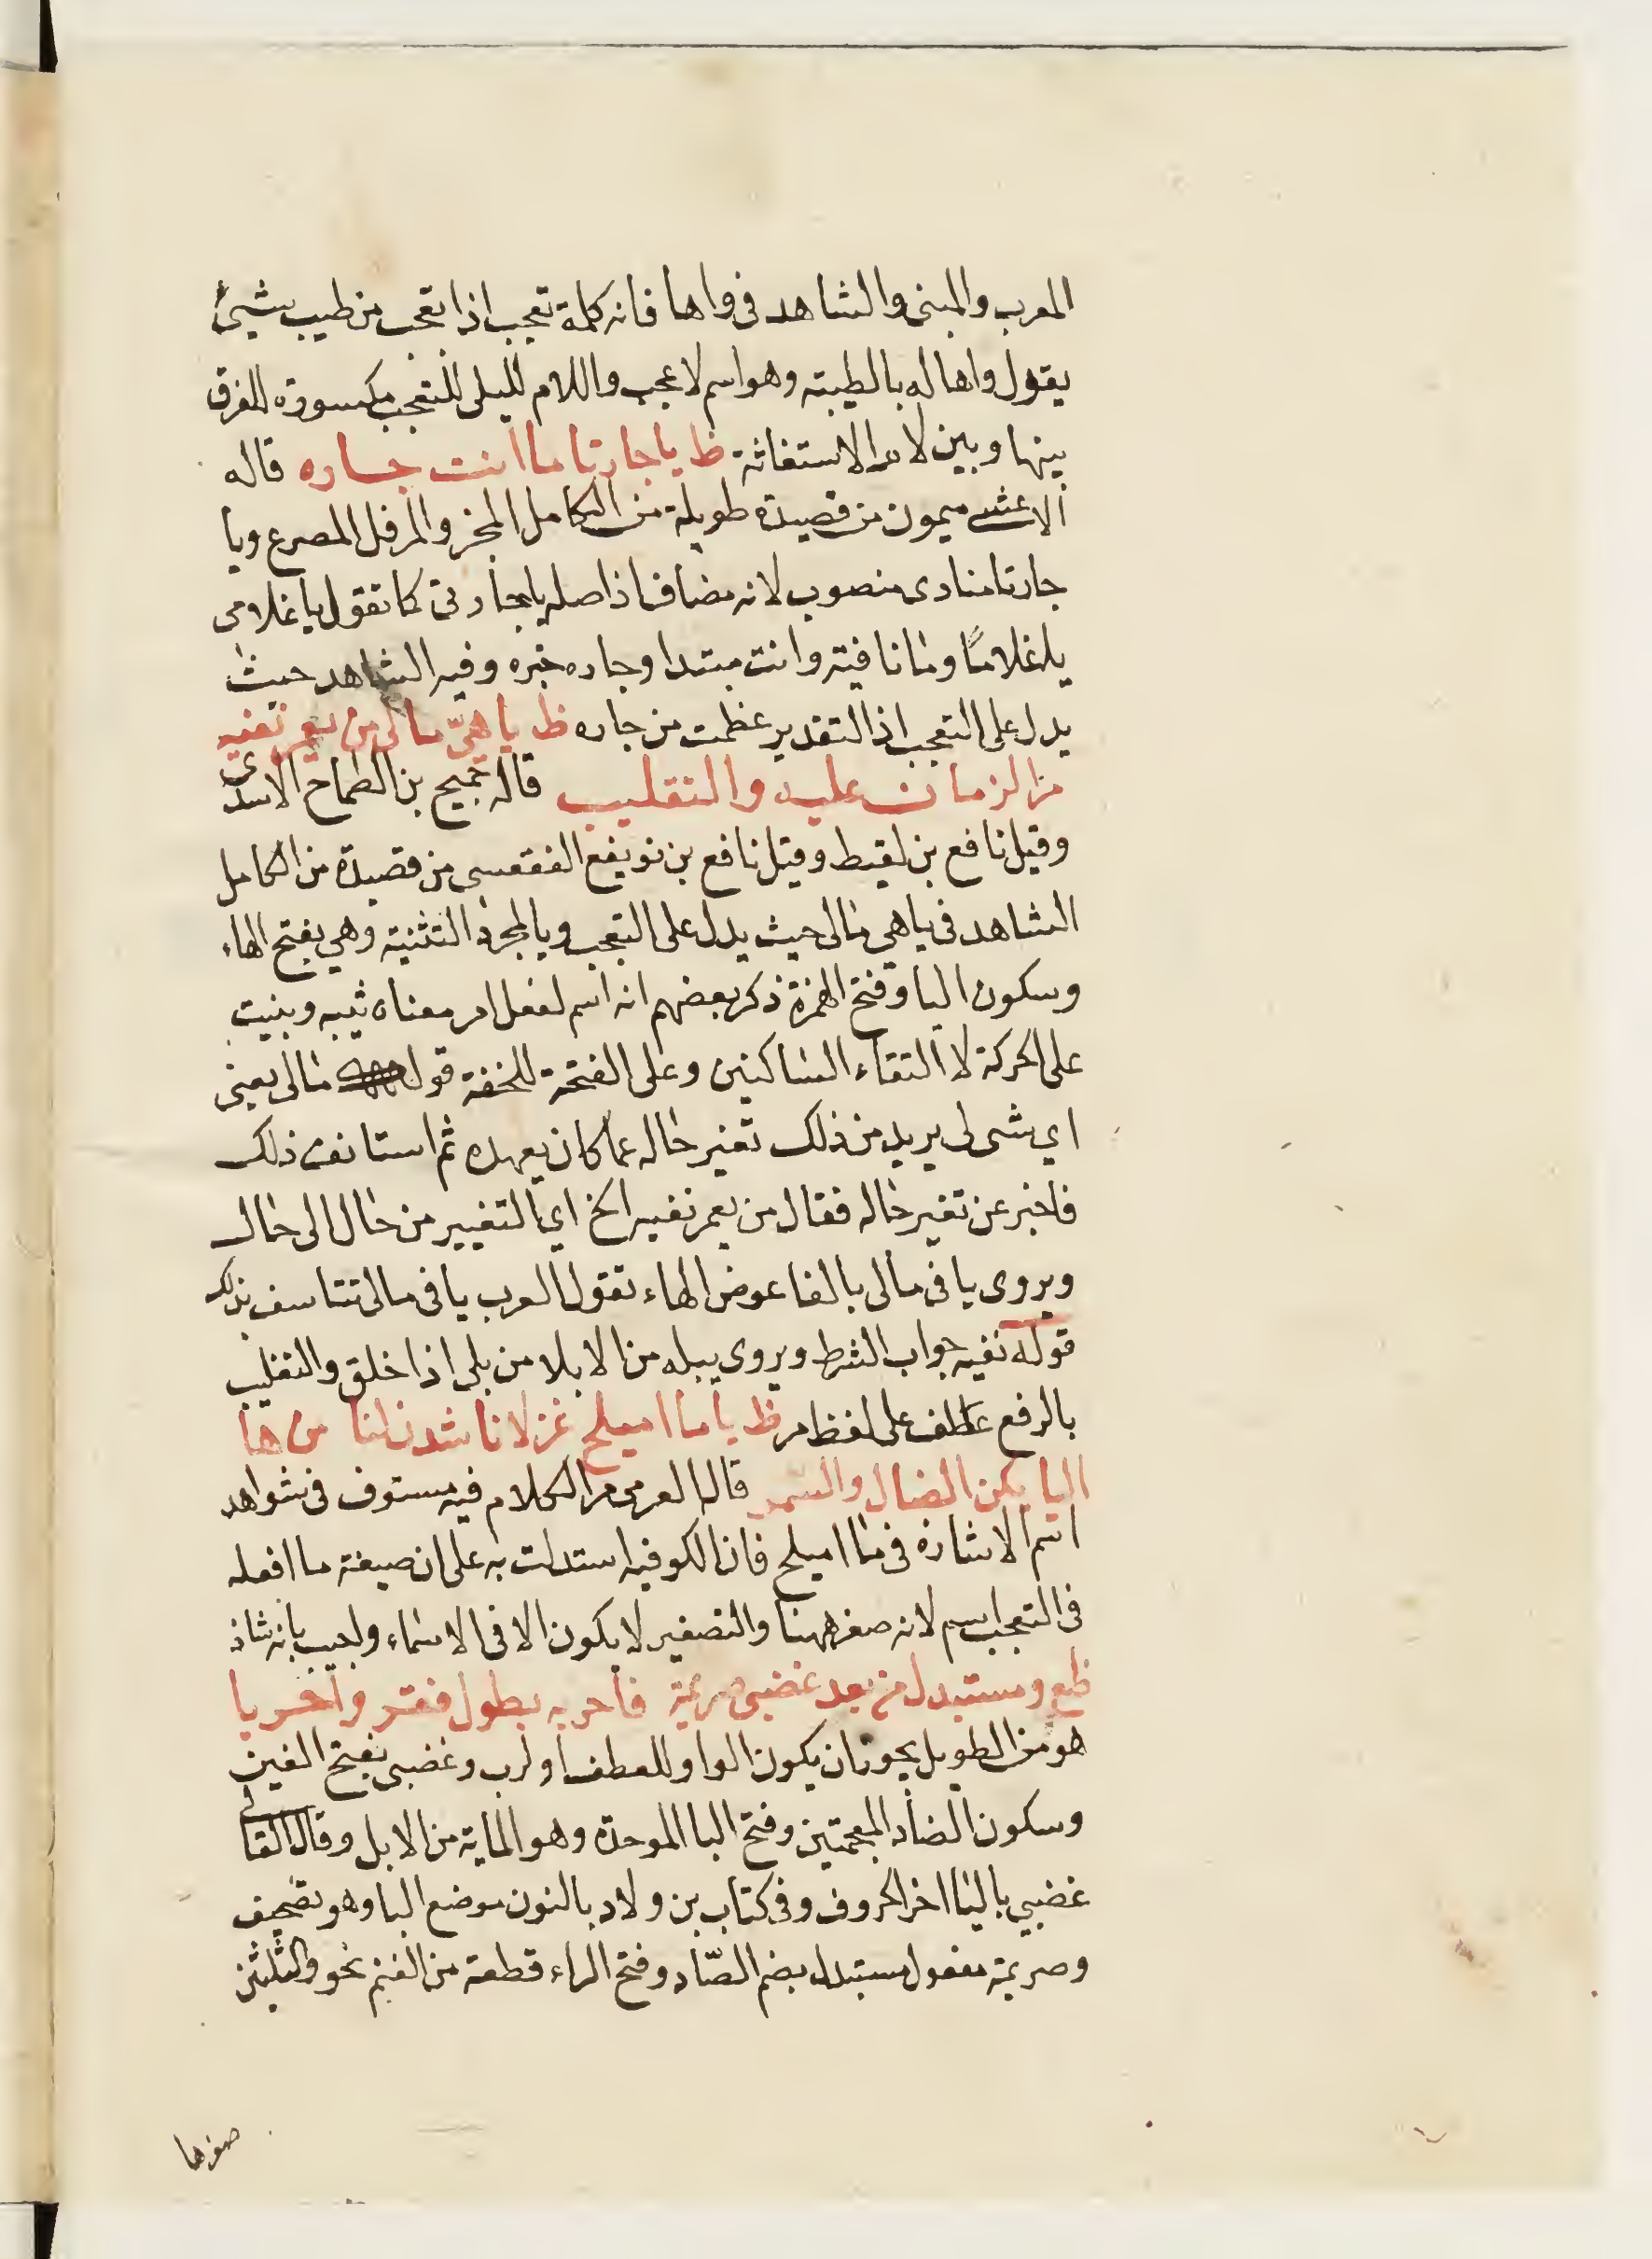 المعرب والمبنى والشاهد فى واها فانه كلمة تعجب اذا تعجب من طيب شيئ
يقول واها له بالطيبته وهو اسم لاعجب واللام لليلى للتعجب مكسورة للفرق
بينها وبين لام الاستغاثة ظ يا جارتا ما انت جاره قاله
الاعشى ميمون من قصيدة طويلة من الكامل المجزو المرفل المصرع ويا
جارتا منادى منصوب لانه مضاف اذ اصله يا جارتى كما تقول يا غلامى
يا غلاما وما نافية وانت مبتدا وجاره خبره وفيه الشاهد حيث
يدل على التعجب اذ التقدير عظمت من جاره ظ يا هيّ مالى من يعمر تفنيه
مر الزمان عليه والتقليب قاله جميح بن الطماح الاسدى
وقيل نافع بن لقيط وقيل نافع بن نويفع الفقعسى من قصيدة من الكامل
الشاهد فى ياهى مالى حيث يدل على التعجب ويا لمجرد التثنية وهي بفتح الهاء
وسكون اليا وفتح الهمزة ذكر بعضهم انه اسم لفعل امر معناه ثيبه وبنيت
على الحركة لا التقاء الساكنين وعلى الفتحة للخفة قوله مالى يعنى
اي شى لى يريد من ذلك تغير حاله عما كان يعهده ثم استانف ذلك
فاخبر عن تغير حاله فقال من يعمر نفيه الخ اي التغيير من حال الى حال
ويروى يا فى مالى بالفا عوض الهاء تقول العرب يا فى مالى تتاسف بذلك
قوله نفيه جواب الشرط ويروى يبله من الابلا من بلى اذا خلق والتقليب
بالرفع عطف على لفظ مر ظ يا ما اميلح غزلانا شدن لنا من ها
اليا يكن الضال والسّمر قاله العرجى مر الكلام فيه مستوف فى شواهد
اسم الاشارة فى ما اميلح فان الكوفيه استدلت به على ان صيغة ما افعله
فى التعجب اسم لانه صغر ههنا والتصغير لا يكون الا فى الاسماء واجيب بانه شاذ
ظع ومستبدل من بعد غضبى صريمة فاحر به بطول فقر واخريا
هو من الطويل يجوز ان يكون الواو للعطف او لرب وغضبى بفتح الغين
وسكون الضاد المعجمتين وفتح البا الموحدة وهو الماية من الابل وقال القالى
غضيي باليا اخر الحروف وفى كتاب بن ولاد بالنون موضع البا وهو تصحيف
وصريمة مفعول مستبدل بضم الصّاد وفتح الراء قطعة من الغنم نحو والثلثين
صغرها